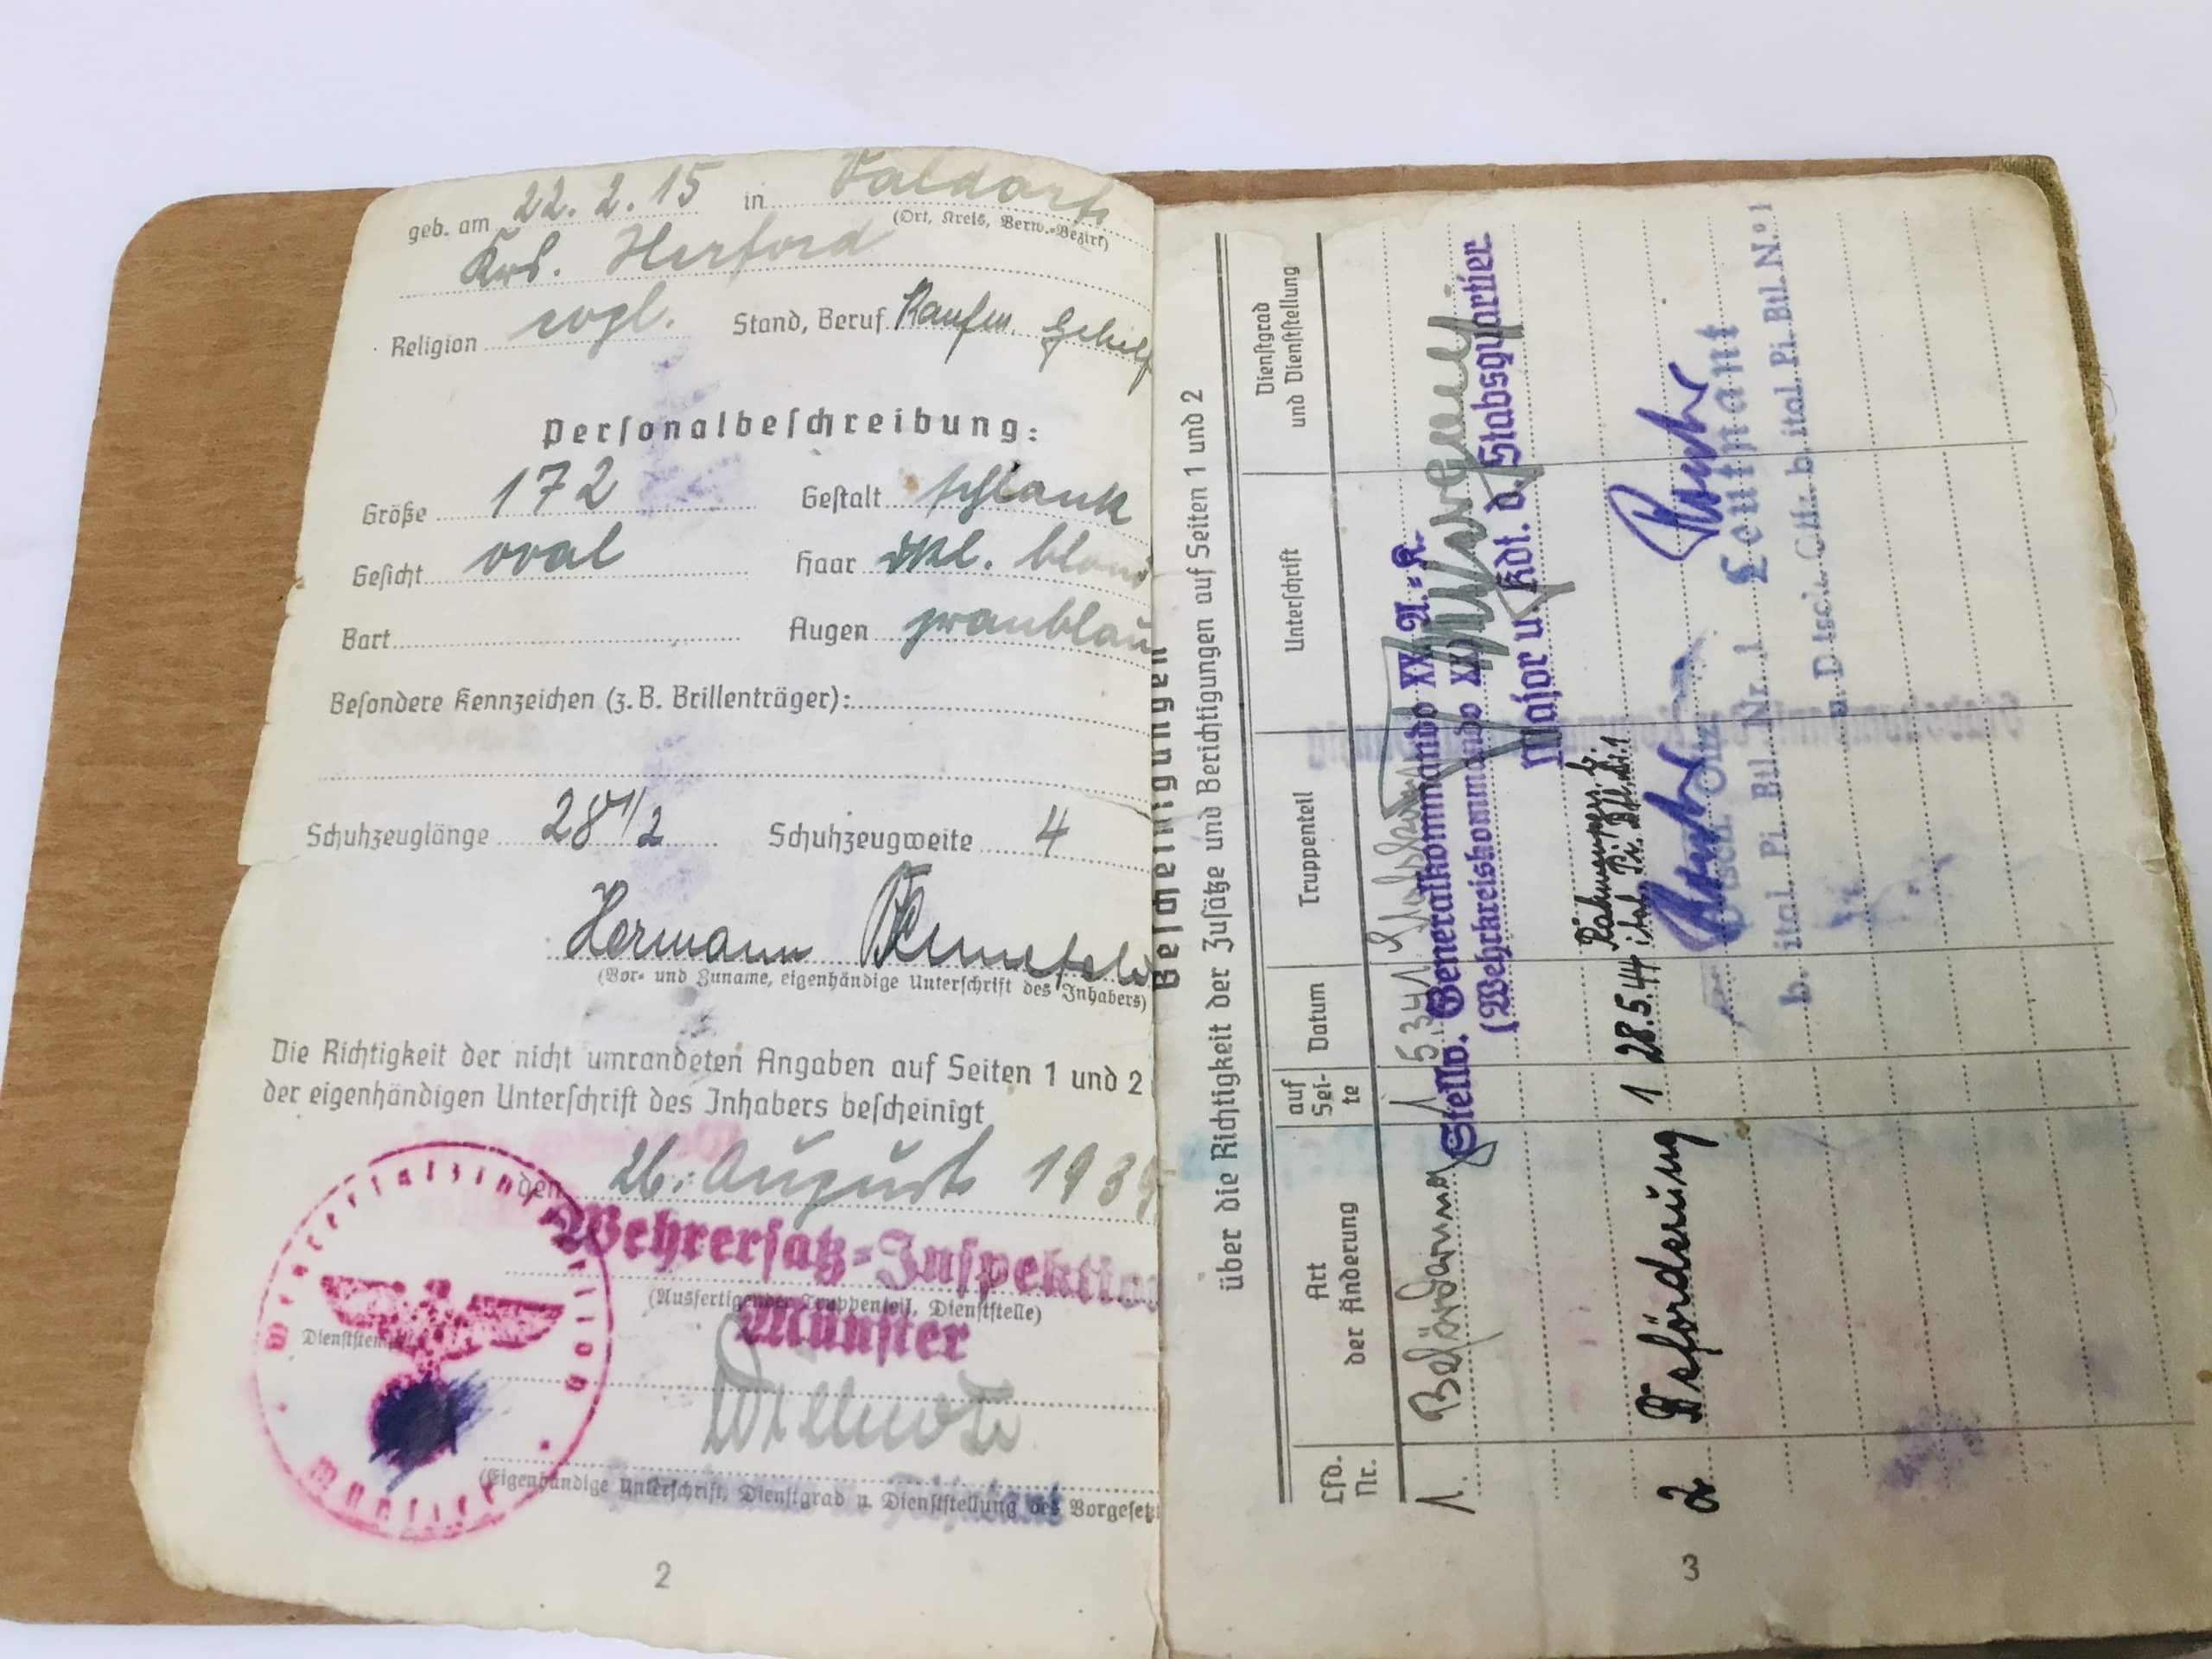 geb. am 22. 2. 15 in Valdorf,
(Ort, Kreis, Verw.-Bezirk)
Krs. Herford
Religion evgl. Stand, Beruf Kaufm. Gehilf
Personalbeschreibung:
Größe 172 Gestalt schlank
Gesicht oval Haar dkl. blond
Bart Augen graublau
Besondere Kennzeichen (z. B. Brillenträger):
Schuhzeuglänge 28 1/2 Schuhzeugweite 4
Hermann
(Vor- und Zuname, eigenhändige Unterschrift des Inhabers)
Die Richtigkeit der nicht umrandeten Angaben auf Seiten 1 und 2
der eigenhändigen Unterschrift des Inhabers bescheinigt
den 26. August 1939
Wehrersatz-Inspektion
(Ausfertigender Truppenteil, Dienststelle)
Münster
Dienststempel
(Eigenhändige Unterschrift, Dienstgrad u. Dienststellung des Vorgesetz
2
Bescheinigungen
über die Richtigkeit der Zusätze und Berichtigungen auf Seiten 1 und 2
Lfd. Nr. Art der Änderung auf Seite Datum Truppenteil Unterschrift Dienstgrad und Dienststellung
1. Beförderung 1
Stellv. Generalkommando XX. A.-K.
(Wehrkreiskommando XX)
Major u. Kdt. d. Stabsquartier.
2 Beförderung 1 28.5.44 ital. Pi. Btl. Nr. 1
Leutnant
b. ital. Pi. Btl. Nr. 1
b. ital. Pi. Btl. Nº 1
3